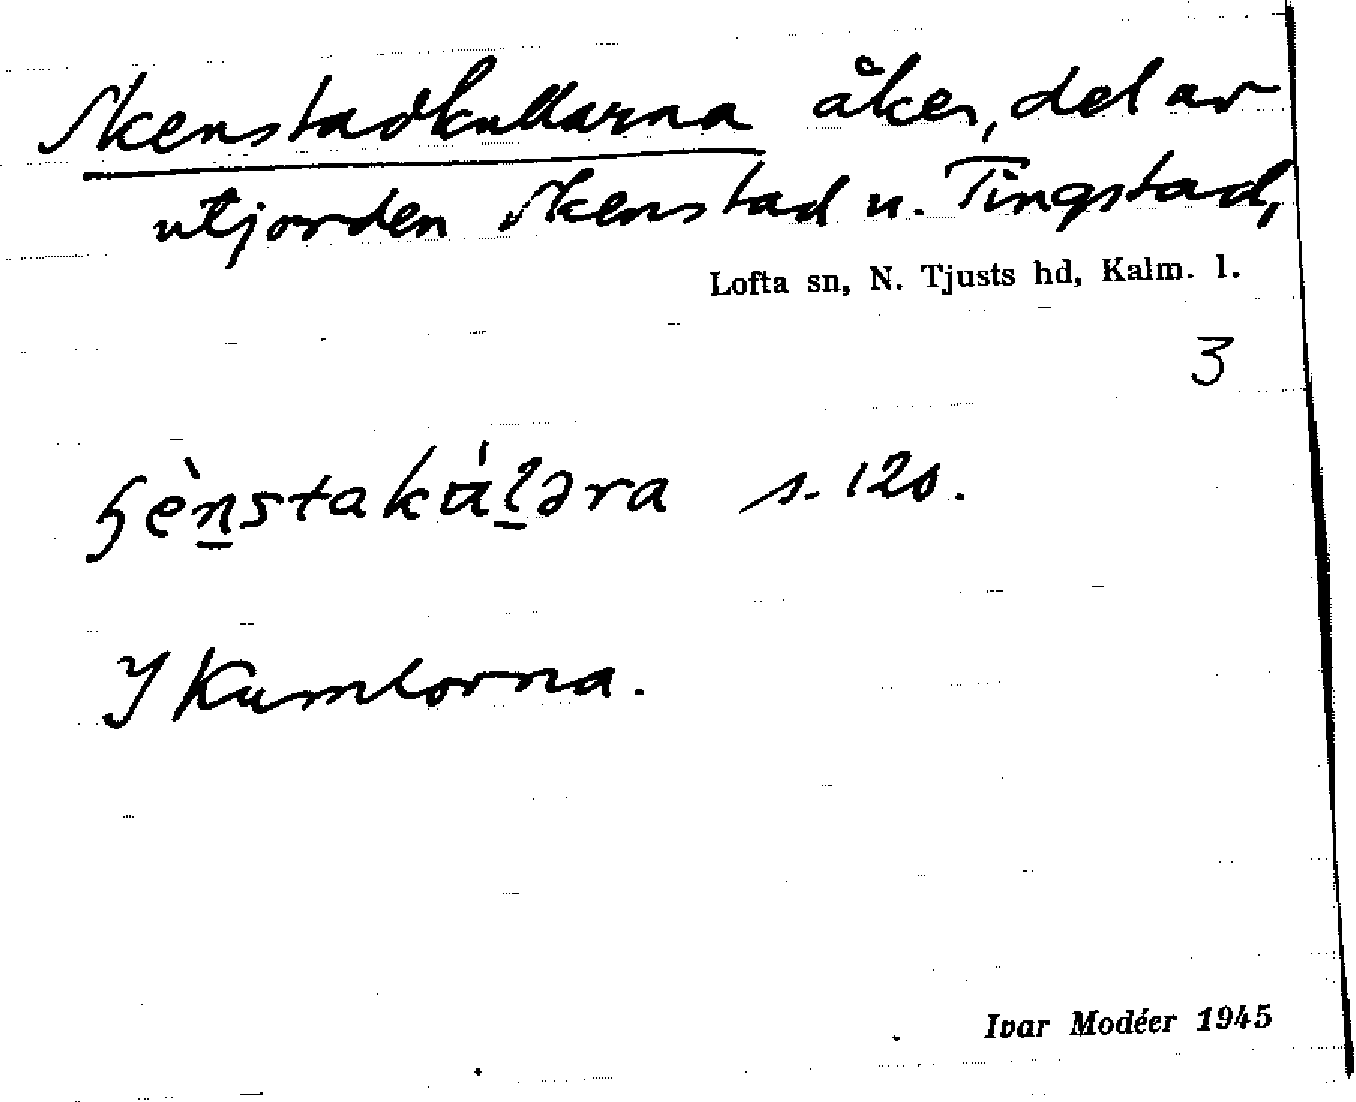 Skenstadkullarna åker, del av
utjorden Skenstad u. Tingstad,
Lofta sn, N. Tjusts hd, Kalm. l.
3
ɧènstakúlǝra s. 120.
I Kumlorna.
Ivar Modéer 1945